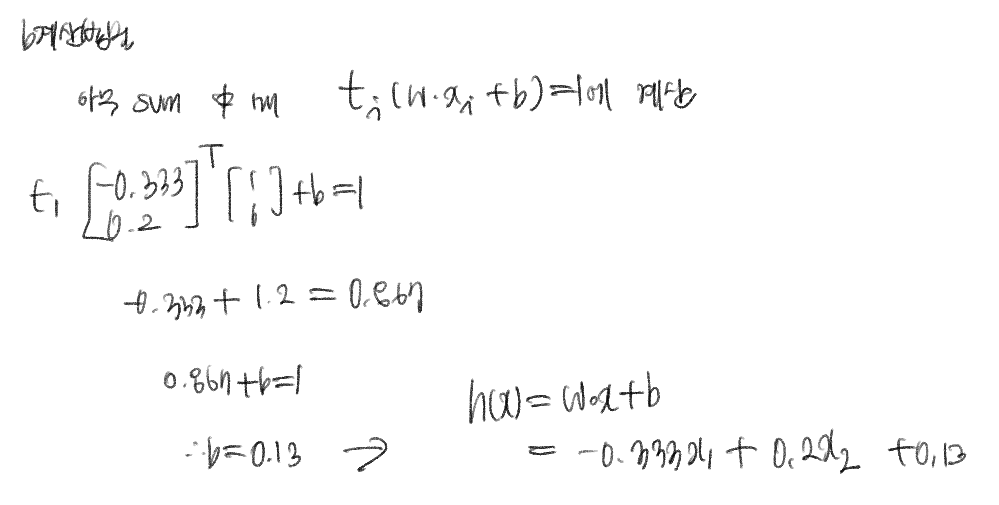 b계산방법
아무 sum 中 에 t_i(w·x_i+b)=1에 계산
t_1 [-0.333 0.2]^T [1 6]+b=1
-0.333+1.2=0.867
0.867+b=1
∴b=0.13 →
h(x)=w·x+b
=-0.333x_1+0.2x_2+0.13